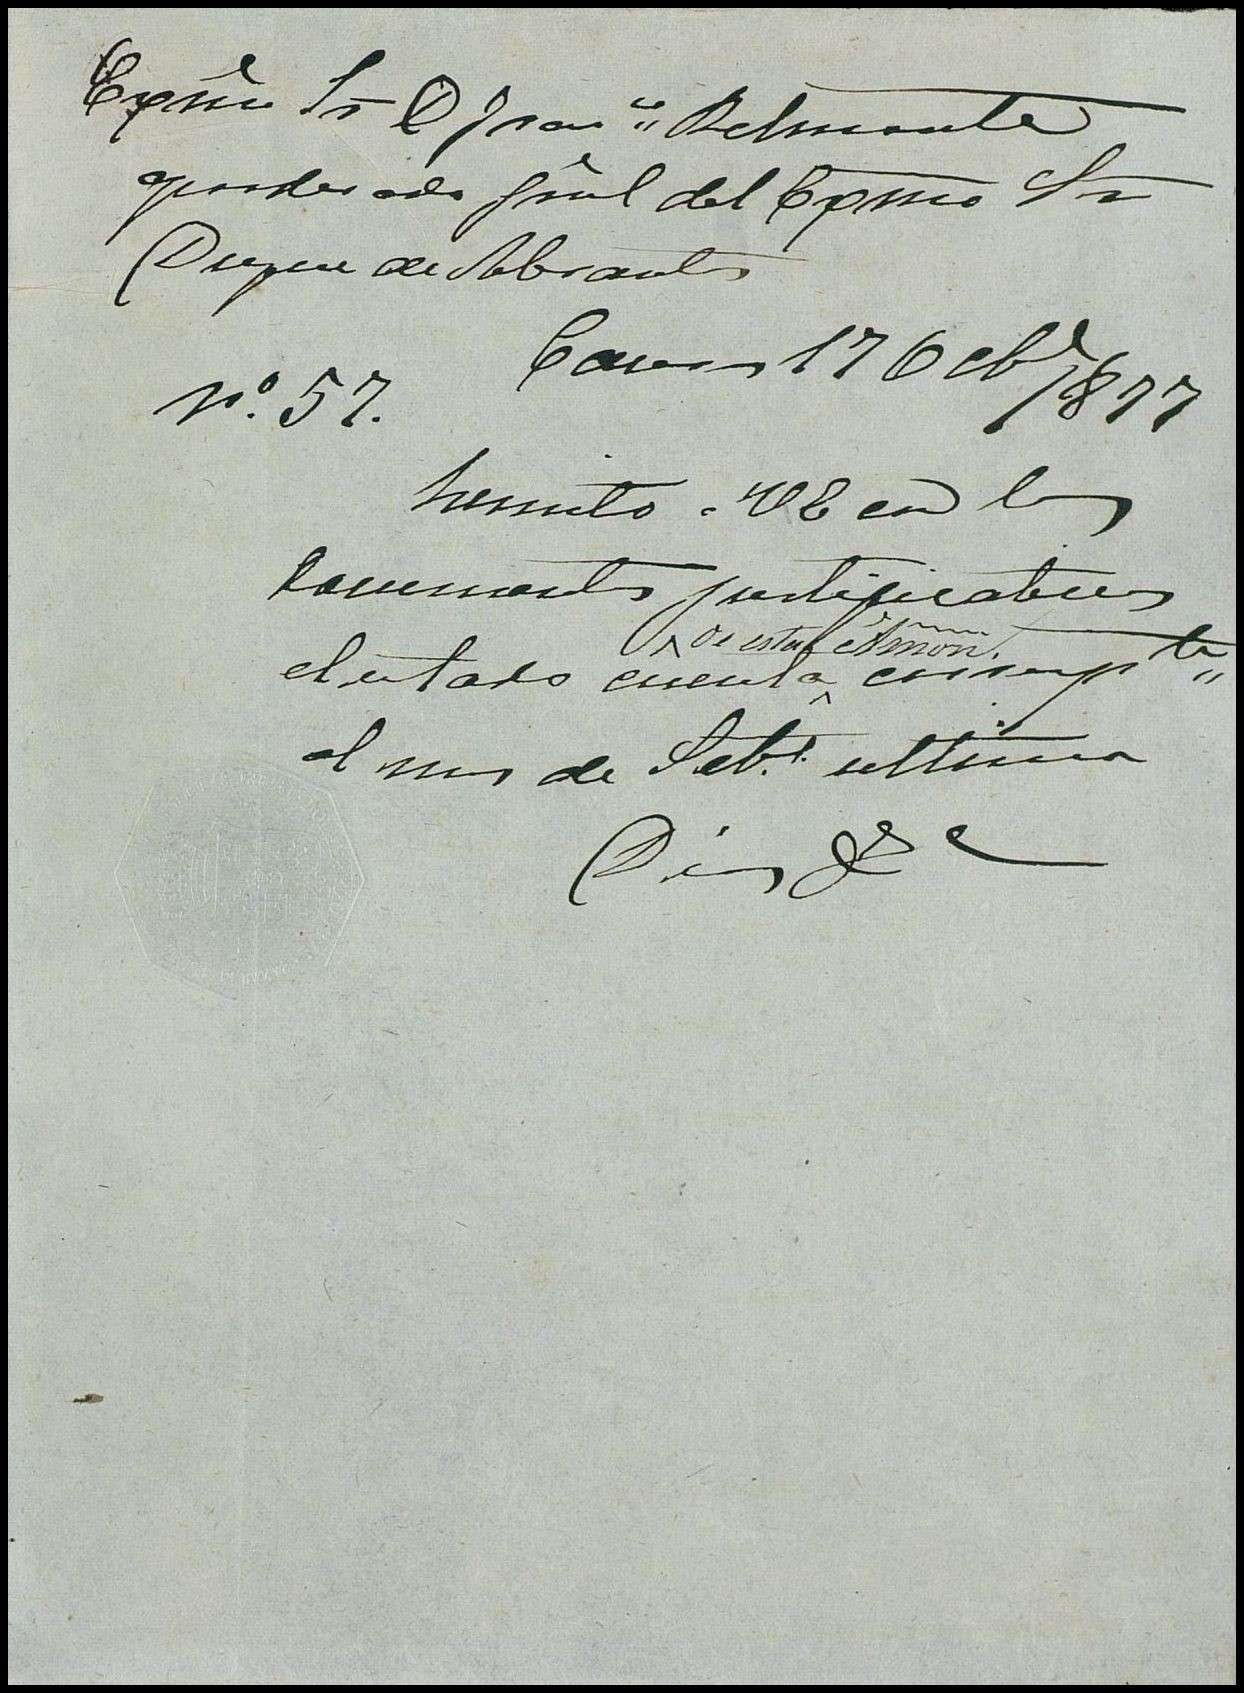 Exmo Sr D Franco Belmonte
apoderado gral del Exmo Sr
Duque de Abrantes
Caceres 17 Octbe 1877
No. 57.
Remito a VE con los
documentos justificativos
de esta Admon.
el estado cuenta correspte
al mes de Setbe. ultimo
Dios &a